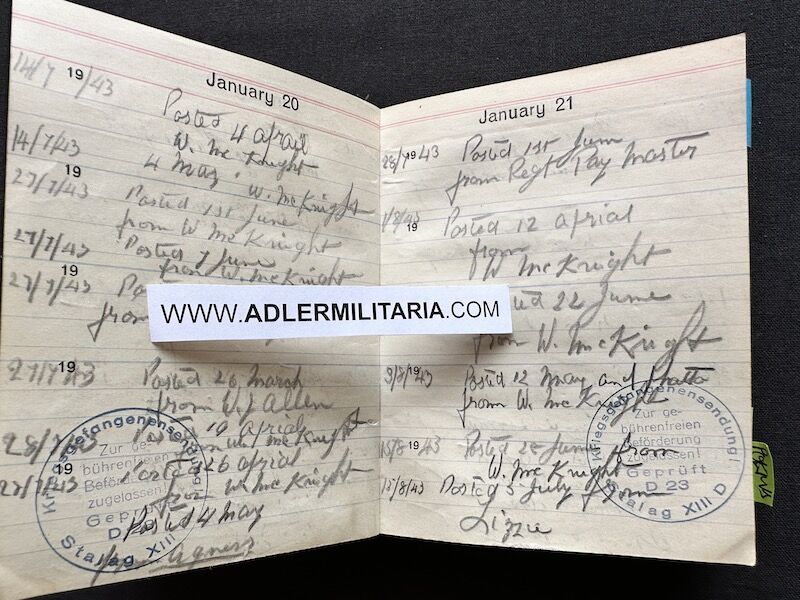 January 20
14/7 19/43 Posted 4 april
W. McKnight
14/7/43 4 May W. McKnight
19
27/7/43 Posted 1st June
from W McKnight
27/7/43 Posted 7 June
from W. McKnight
19
27/7/43
from
WWW.ADLERMILITARIA.COM
19
27/7/43 Posted 26 March
from W J Allen
28/7/43 Posted 19 aprial
from W. McKnight
19
27/7/43 Posted 26 aprial
from W. McKnight
Posted 4 May
from Agness
Kriegsgefangenensendung
Zur ge-
bührenfreien
Beförderung
zugelassen!
Geprüft
D
Stalag XIII
January 21
28/7 19 43 Posted 1st June
from Regt Pay Master
1/8/43 Posted 12 aprial
19
from
W McKnight
22 June
from W. McKnight
9/8/19 43 Posted 12 May and
from W. McKnight
15/8/19 43 Posted 22 June from
W. McKnight
15/8/43 Posted 5 July from
Lizzie
Kriegsgefangenensendung!
Zur ge-
bührenfreien
Beförderung
zugelassen!
Geprüft
D 23
Stalag XIII D